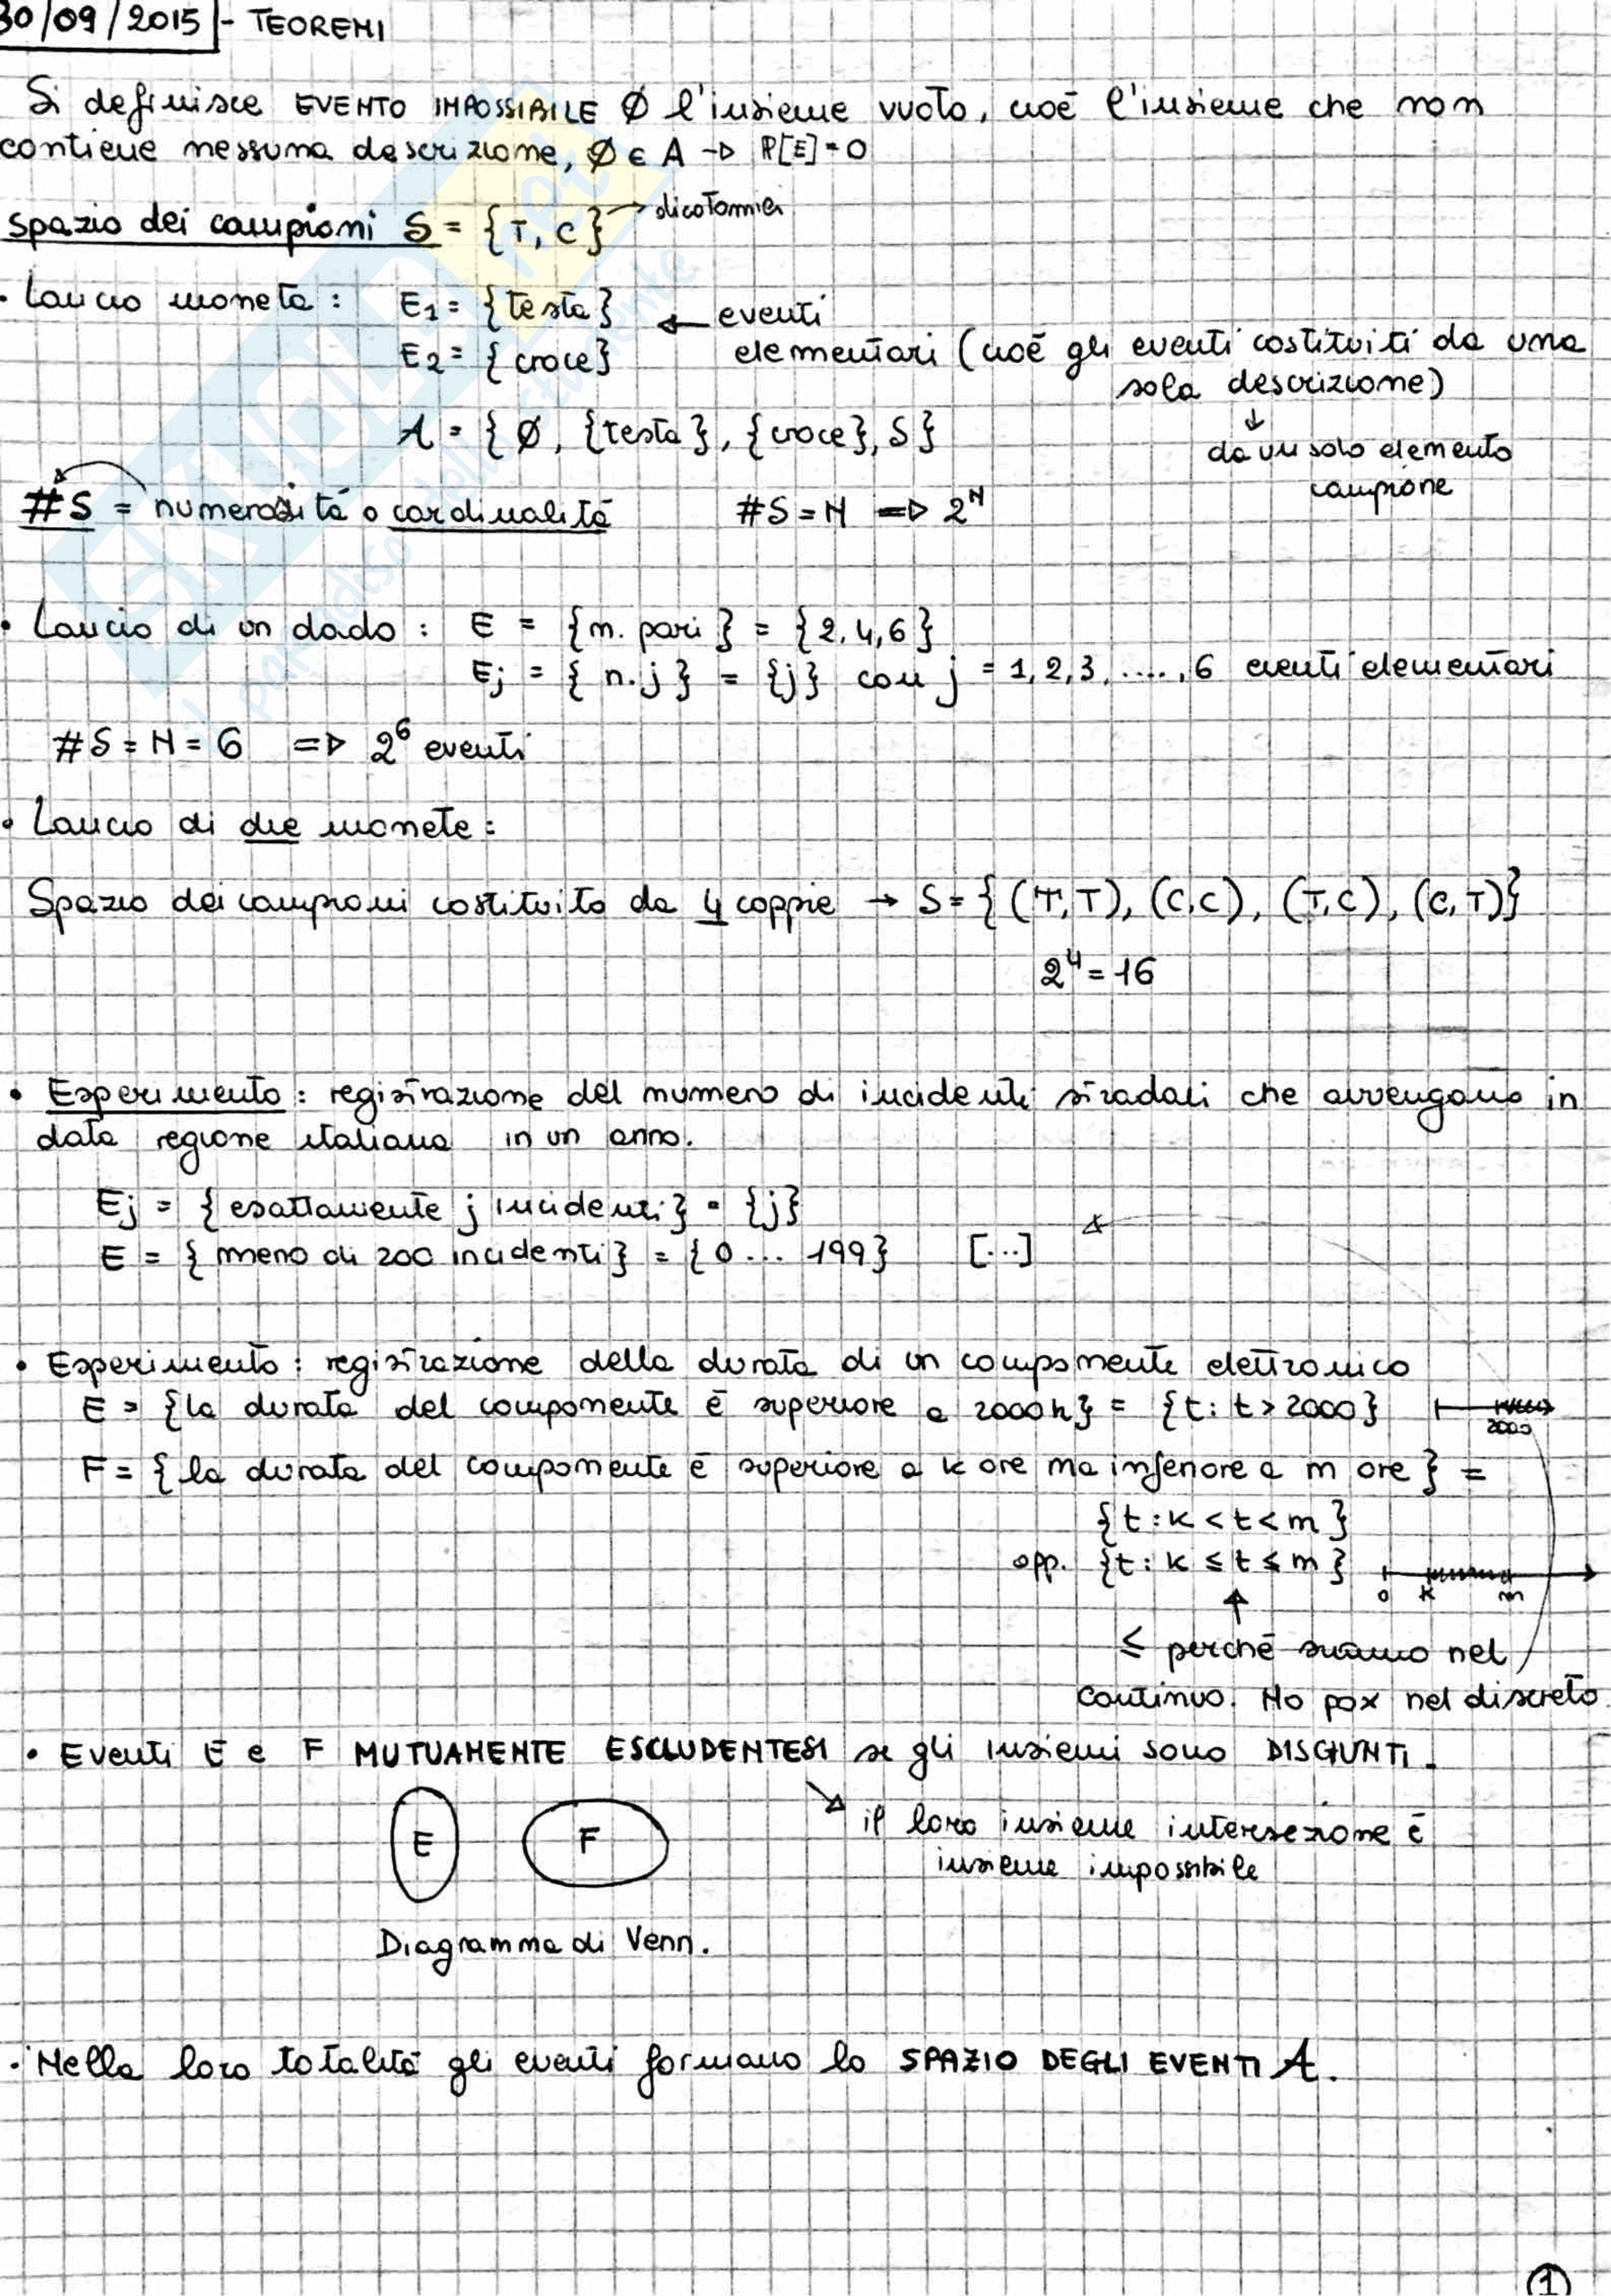 30/09/2015 - TEOREMI
Si definisce EVENTO IMPOSSIBILE Ø l'insieme vuoto, cioè l'insieme che non
contiene nessuna descrizione, Ø ∈ A → P[E]=0
spazio dei campioni S = {T, C} → dicotomica
· Lancio moneta: E1 = {testa} ← eventi
E2 = {croce} elementari (cioè gli eventi costituiti da una
sola descrizione)
↓
A = {Ø, {testa}, {croce}, S} da un solo elemento
campione
#S = numerosità o cardinalità #S = N => 2^N
· Lancio di un dado: E = {n. pari} = {2, 4, 6}
Ej = {n. j} = {j} con j = 1, 2, 3, ...., 6 eventi elementari
#S = N = 6 => 2^6 eventi
· Lancio di due monete:
Spazio dei campioni costituito da 4 coppie → S = {(T,T), (C,C), (T,C), (C,T)}
2^4 = 16
· Esperimento: registrazione del numero di incidenti stradali che avvengono in
data regione italiana in un anno.
Ej = {esattamente j incidenti} = {j}
E = {meno di 200 incidenti} = {0 ... 199} [...]
· Esperimento: registrazione della durata di un componente elettronico
E = {la durata del componente è superiore a 2000 h} = {t: t > 2000}
2000
F = {la durata del componente è superiore a k ore ma inferiore a m ore} =
{t : k < t < m}
opp. {t : k ≤ t ≤ m}
0 k m
↑
≤ perché siamo nel
continuo. No pox nel discreto
· Eventi E e F MUTUAMENTE ESCLUDENTESI se gli insiemi sono DISGIUNTI.
E F il loro insieme intersezione è
insieme impossibile
Diagramma di Venn.
· Nella loro totalità gli eventi formano lo SPAZIO DEGLI EVENTI A.
1
SKUOLA.net
il paradiso dello studente